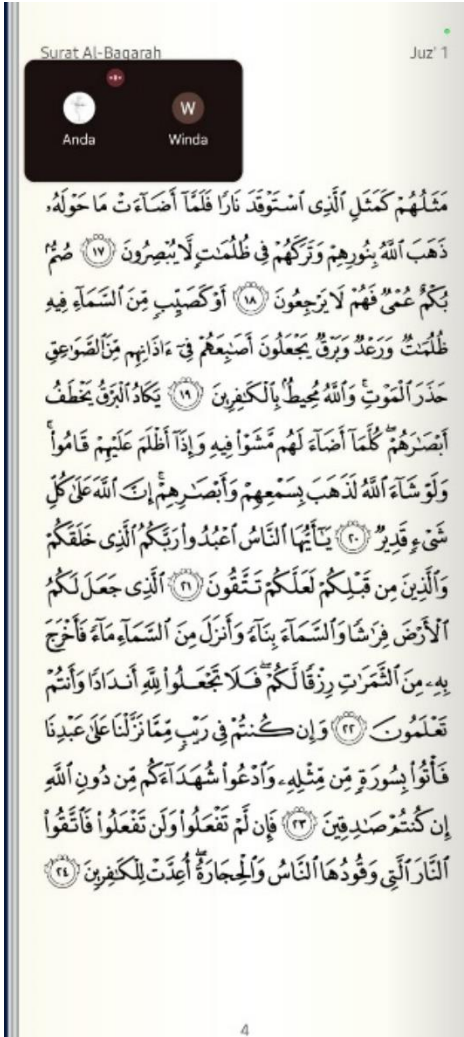 Surat Al-Baqarah
Juz' 1
W
Anda
Winda
مَثَلُهُمْ كَمَثَلِ ٱلَّذِى ٱسْتَوْقَدَ نَارًا فَلَمَّآ أَضَآءَتْ مَا حَوْلَهُۥ
ذَهَبَ ٱللَّهُ بِنُورِهِمْ وَتَرَكَهُمْ فِى ظُلُمَـٰتٍ لَّا يُبْصِرُونَ ١٧ صُمٌّۢ
بُكْمٌ عُمْىٌ فَهُمْ لَا يَرْجِعُونَ ١٨ أَوْ كَصَيِّبٍ مِّنَ ٱلسَّمَآءِ فِيهِ
ظُلُمَـٰتٌ وَرَعْدٌ وَبَرْقٌ يَجْعَلُونَ أَصَـٰبِعَهُمْ فِىٓ ءَاذَانِهِم مِّنَ ٱلصَّوَٰعِقِ
حَذَرَ ٱلْمَوْتِ ۚ وَٱللَّهُ مُحِيطٌۢ بِٱلْكَـٰفِرِينَ ١٩ يَكَادُ ٱلْبَرْقُ يَخْطَفُ
أَبْصَـٰرَهُمْ ۖ كُلَّمَآ أَضَآءَ لَهُم مَّشَوْا۟ فِيهِ وَإِذَآ أَظْلَمَ عَلَيْهِمْ قَامُوا۟ ۚ
وَلَوْ شَآءَ ٱللَّهُ لَذَهَبَ بِسَمْعِهِمْ وَأَبْصَـٰرِهِمْ ۚ إِنَّ ٱللَّهَ عَلَىٰ كُلِّ
شَىْءٍ قَدِيرٌ ٢٠ يَـٰٓأَيُّهَا ٱلنَّاسُ ٱعْبُدُوا۟ رَبَّكُمُ ٱلَّذِى خَلَقَكُمْ
وَٱلَّذِينَ مِن قَبْلِكُمْ لَعَلَّكُمْ تَتَّقُونَ ٢١ ٱلَّذِى جَعَلَ لَكُمُ
ٱلْأَرْضَ فِرَٰشًا وَٱلسَّمَآءَ بِنَآءً وَأَنزَلَ مِنَ ٱلسَّمَآءِ مَآءً فَأَخْرَجَ
بِهِۦ مِنَ ٱلثَّمَرَٰتِ رِزْقًا لَّكُمْ ۖ فَلَا تَجْعَلُوا۟ لِلَّهِ أَندَادًا وَأَنتُمْ
تَعْلَمُونَ ٢٢ وَإِن كُنتُمْ فِى رَيْبٍ مِّمَّا نَزَّلْنَا عَلَىٰ عَبْدِنَا
فَأْتُوا۟ بِسُورَةٍ مِّن مِّثْلِهِۦ وَٱدْعُوا۟ شُهَدَآءَكُم مِّن دُونِ ٱللَّهِ
إِن كُنتُمْ صَـٰدِقِينَ ٢٣ فَإِن لَّمْ تَفْعَلُوا۟ وَلَن تَفْعَلُوا۟ فَٱتَّقُوا۟
ٱلنَّارَ ٱلَّتِى وَقُودُهَا ٱلنَّاسُ وَٱلْحِجَارَةُ ۖ أُعِدَّتْ لِلْكَـٰفِرِينَ ٢٤
4